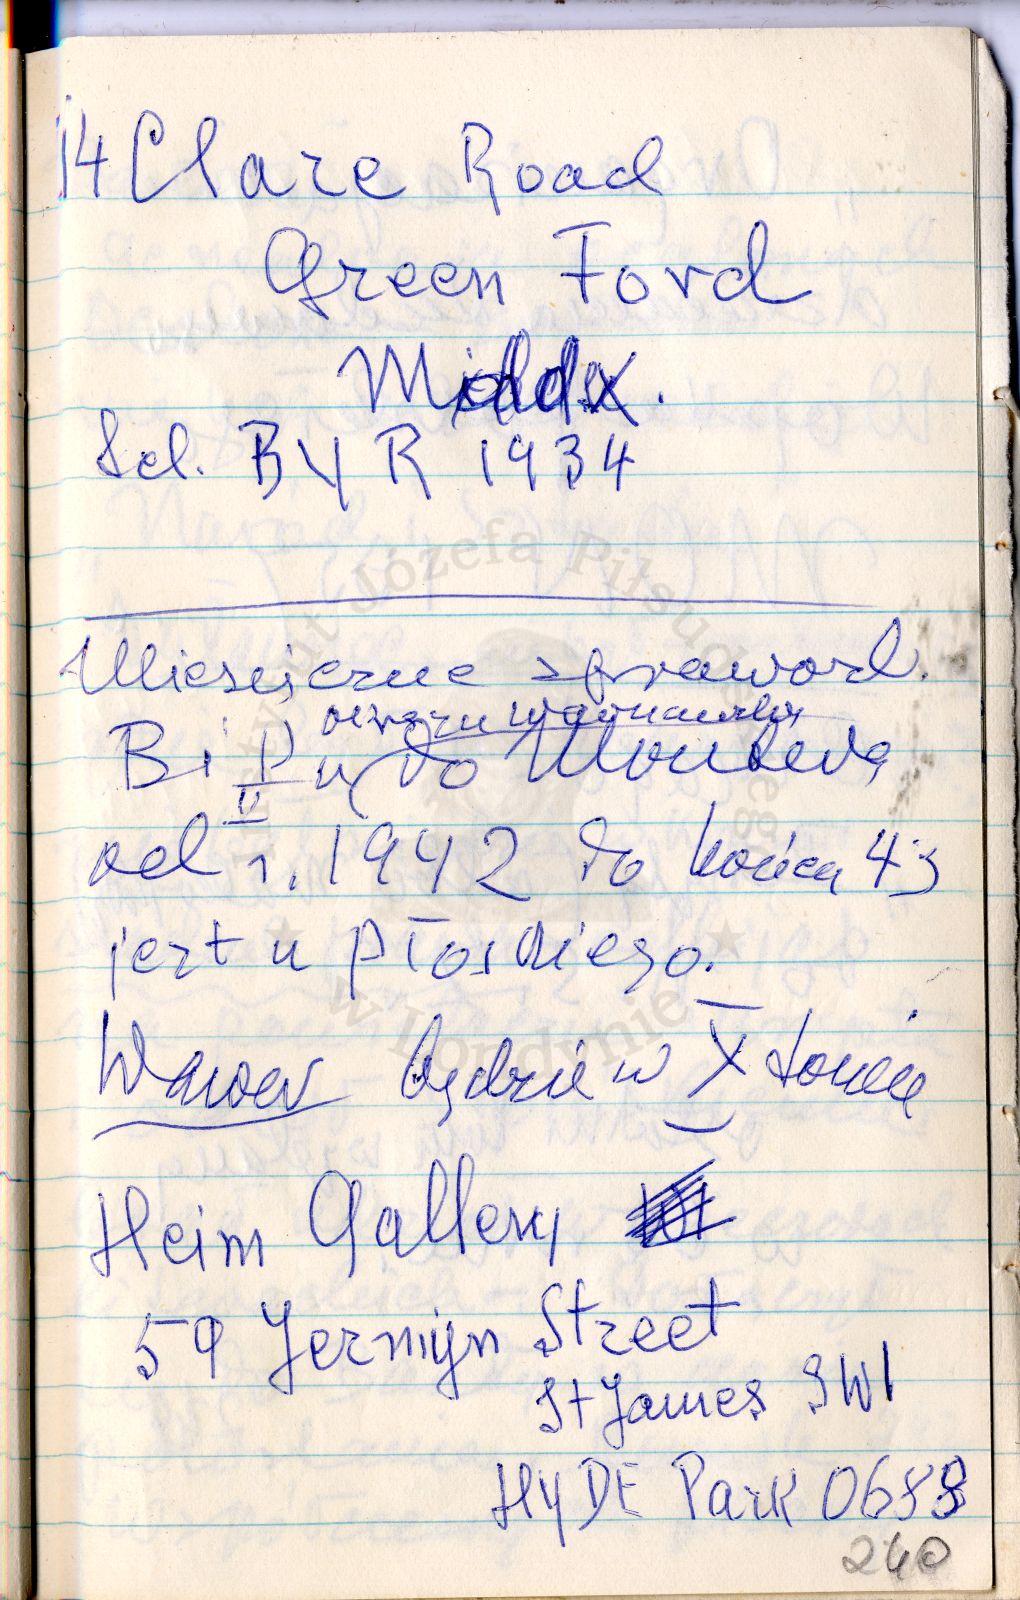 14 Clare Road
Green Ford
Middx.
tel. BYR 1934
Miesięczne sprawozd.
okręgu warszawskiego
B i P u do Montera
II
od 1. 1942 do końca 43
jest u Płoskiego.
Wawer będzie w X tomie
Heim Gallery
59 Jermyn Street
St James SW1
HYDE Park 0688
240
Instytut Józefa Piłsudskiego
w Londynie